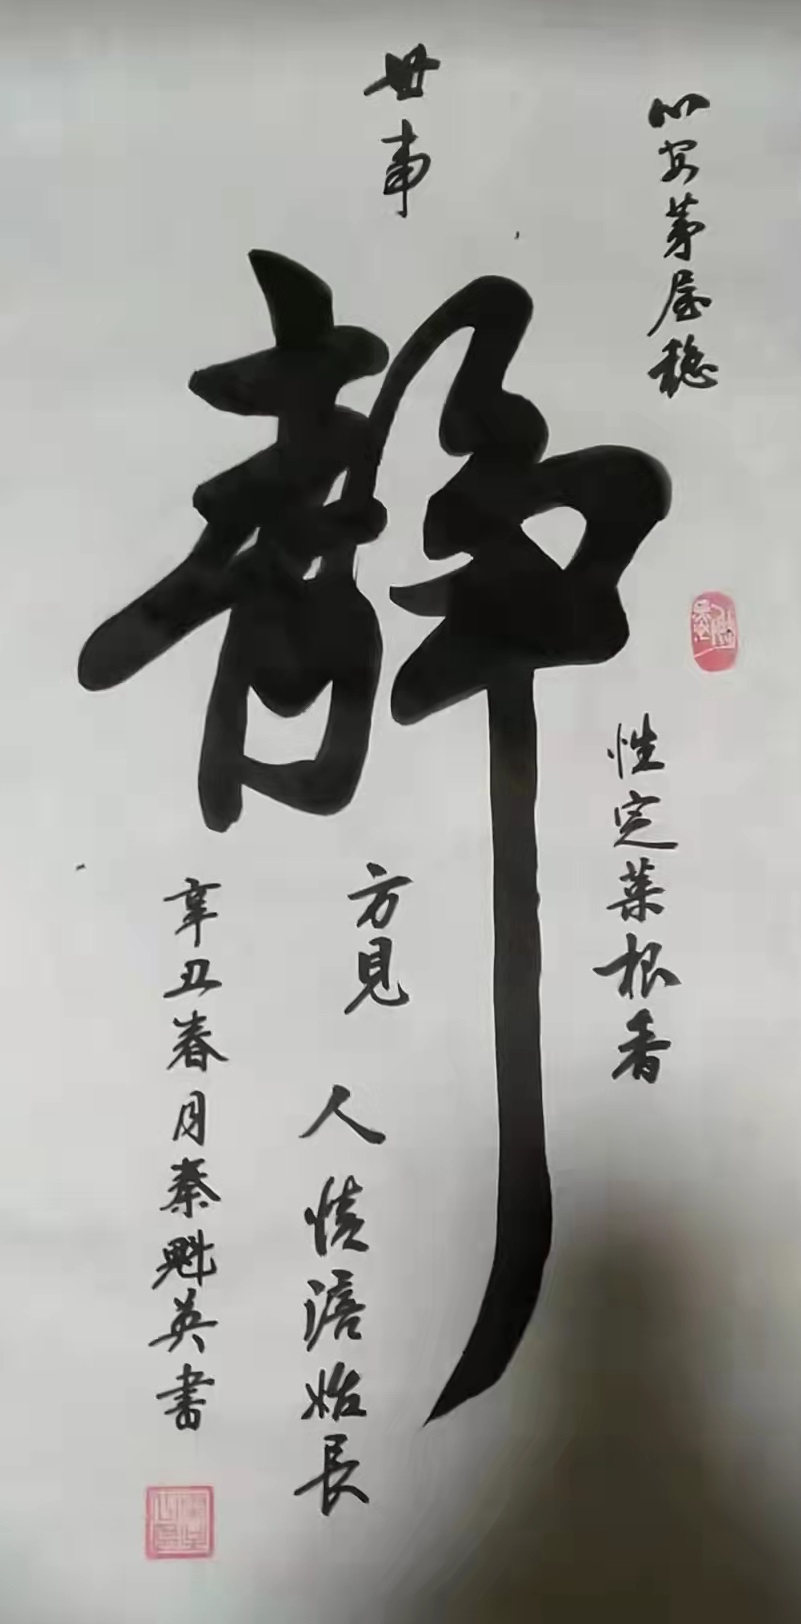 心安茅屋稳
性定菜根香
世事
静
方见
人情澹始長
辛丑春月秦魁英書